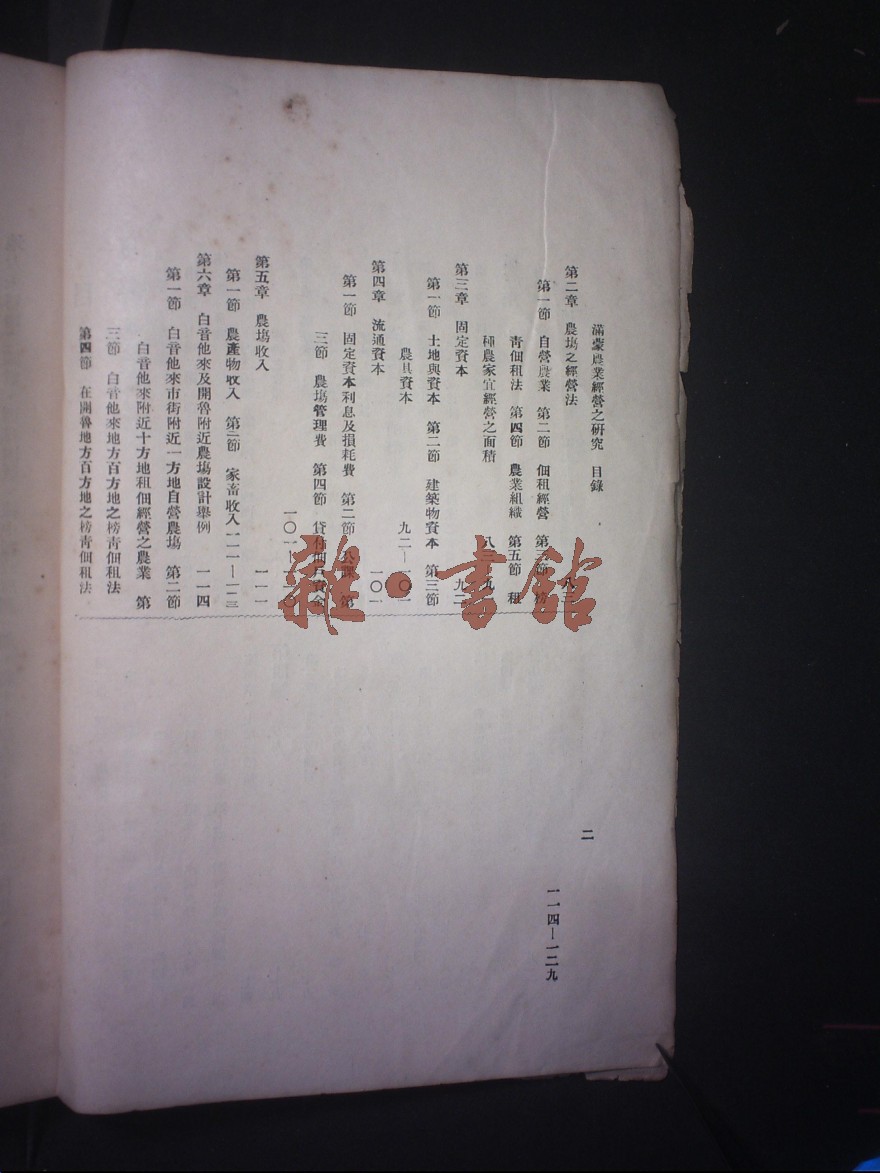 滿蒙農業經營之硏究　目錄
二
第二章　農塲之經營法　八三
第一節　自營農業　第二節　佃租經營　第三節　榜
靑佃租法　第四節　農業組織　第五節　租
種農家宜經營之面積　八三
第三章　固定資本　九二
第一節　土地與資本　第二節　建築物資本　第三節
農具資本　九二—一〇一
第四章　流通資本　一〇一
第一節　固定資本利息及損耗費　第二節　第
三節　農塲管理費　第四節　貸付佃戶資金
一〇一—一一〇
第五章　農塲收入　一一一
第一節　農產物收入　第二節　家畜收入　一一一—一一三
第六章　白音他來及開魯附近農塲設計舉例　一一四
第一節　白音他來市街附近一方地自營農塲　第二節
白音他來附近十方地租佃經營之農業　第
三節　白音他來地方百方地之榜靑佃租法
第四節　在開魯地方百方地之榜靑佃租法
一一四—一二九
雜·書館